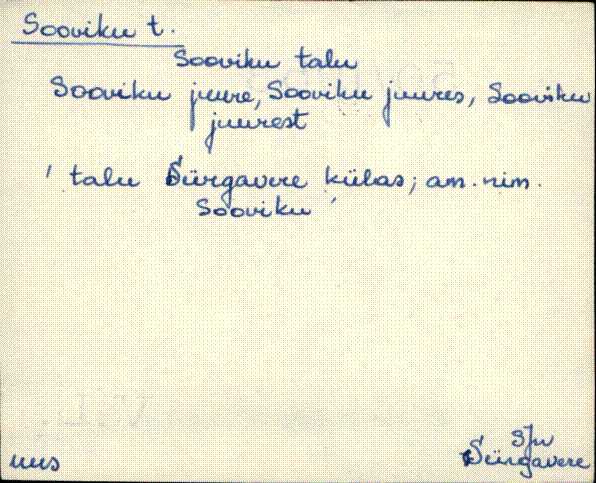 Sooviku t.
Sooviku talu
Sooviku juure, Sooviku juures, Sooviku
juurest
' talu Sürgavere külas; am. nim.
Sooviku '
SJn
uus Sürgavere